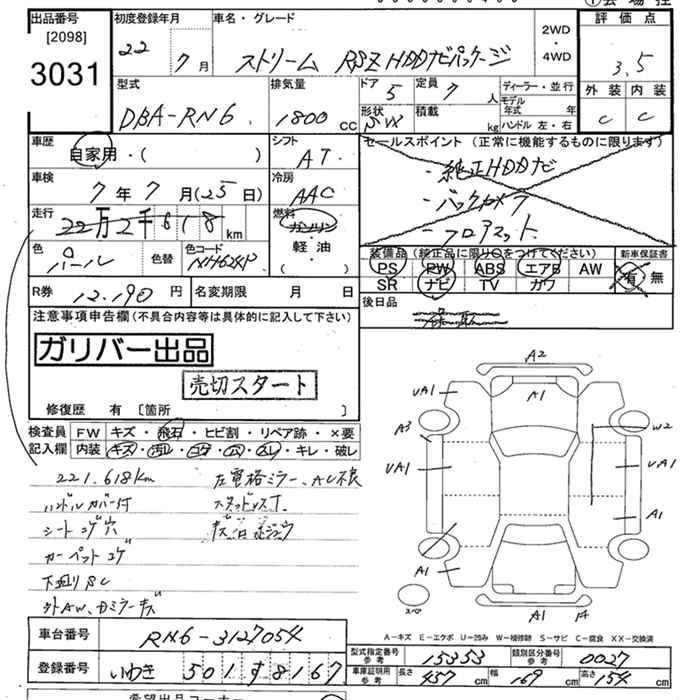 出品番号
[2098]
3031
初度登録年月
22 7月
車名・グレード
ストリーム RSZ HDDナビパッケージ
2WD
・
4WD
評価点
3.5
外装 内装
C C
型式
DBA-RN6
排気量
1800 cc
ドア
5
形状
SW
定員
7 人
積載
kg
ディーラー・並行
モデル年式 年
ハンドル 左・右
車歴
自家用・( )
シフト
AT
車検
7年7月(25日)
冷房
AAC
走行
22万2千618 km
燃料
ガソリン
軽・油
・( )
色
パール
色替
色コード
NH624P
R券
12.190円
名変期限 月 日
セールスポイント (正常に機能するものに限ります)
・純正HDDナビ
・バックカメラ
・フロアマット
装備品 (純正品に限り○をつけてください)
PS PW ABS エアB AW
SR ナビ TV ガワ
新車保証書
有・無
後日品
注意事項申告欄(不具合内容等は具体的に記入して下さい)
ガリバー出品
売切スタート
修復歴 有 [箇所 ]
検査員
記入欄
FW キズ・飛石・ヒビ割・リペア跡・×要
内装 キズ・汚レ・コゲ・穴・スレ・キレ・破レ
221.618km
ハンドルカバー付
シートコゲ穴
カーペットコゲ
下廻りSC
外AW、カミラーキズ
左電格ミラー、AC不良
A2
A1
UA1
A3
UA1
A1
W2
UA1
A1
A1 14
スペ
A-キズ E-エクボ U-凹み W-補修跡 S-サビ C-腐食 XX-交換済
車台番号
RN6-3127054
登録番号
いわき 501 す 8167
型式指定番号
参考
15353
類別区分番号
参考
0027
車庫証明用
参考
長さ 457 cm
幅 169 cm
高さ 154 cm